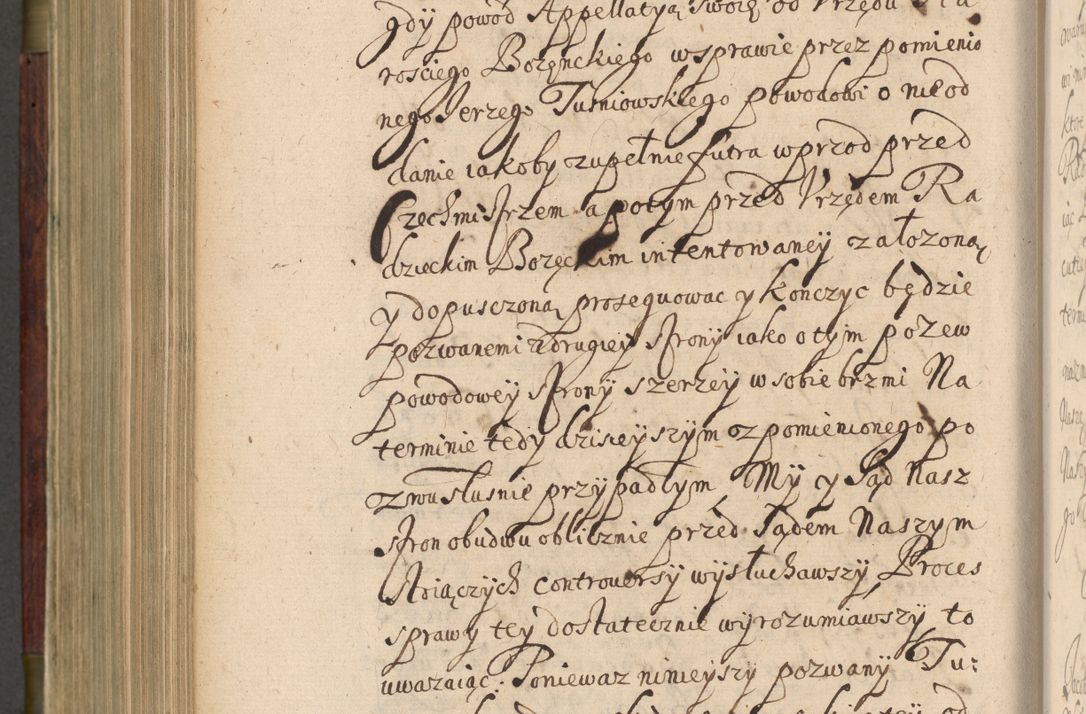 gdy powod Appellatyą swoię od Vrzędu Sta
rosciego Boręnckiego w sprawie przez pomienio
nego Jerzego Tusniowskiego powodowi o nieod
danie iakoby zupełnie futra wprzod przed
Czechmistrzem a potym przed Vrzędem Ra
dzieckim Boręckim intentowaney załozoną
y dopusczoną prosequowac y konczyc będzie
pozwanemi z drugiey strony iako o tym pozew
powodowey strony szerzey w sobie brzmi Na
terminie tedy dzisieyszym z pomienionego po
zwu słusnie przypadłym My y Sąd Nasz
stron obudwu oblicznie przed Sądem Naszym
stoiączych controwersy wysłuchawszy Proces
sprawy tey dostatecznie wyrozumiawszy to
uwazaiąc: Poniewaz ninieyszy pozwany Tu: